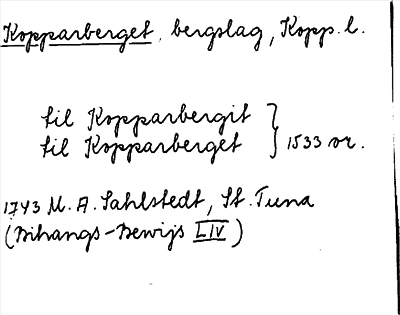 Kopparberget, bergslag, Kopp. l.
til Kopparbergit
til Kopparberget } 1533 or.
1743 M. A. Sahlstedt, St. Tuna
(Bihangs-Bewijs LIV)